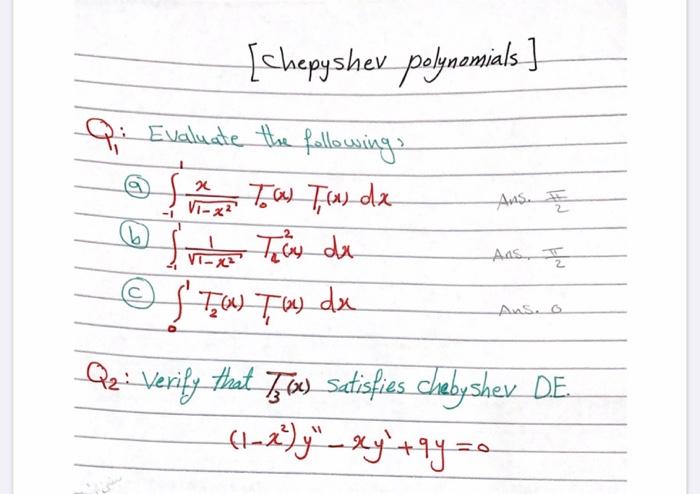 [Chepyshev polynomials]
Q₁: Evaluate the following:
ⓐ ∫₋₁¹ x/√(1-x²) T₀(x) T₁(x) dx Ans. π/2
ⓑ ∫₋₁¹ 1/√(1-x²) T₂²(x) dx Ans. π/2
ⓒ ∫₀¹ T₂(x) T₁(x) dx Ans. 0
Q₂: Verify that T₃(x) satisfies chebyshev D.E.
(1-x²)y'' - xy' + 9y = 0